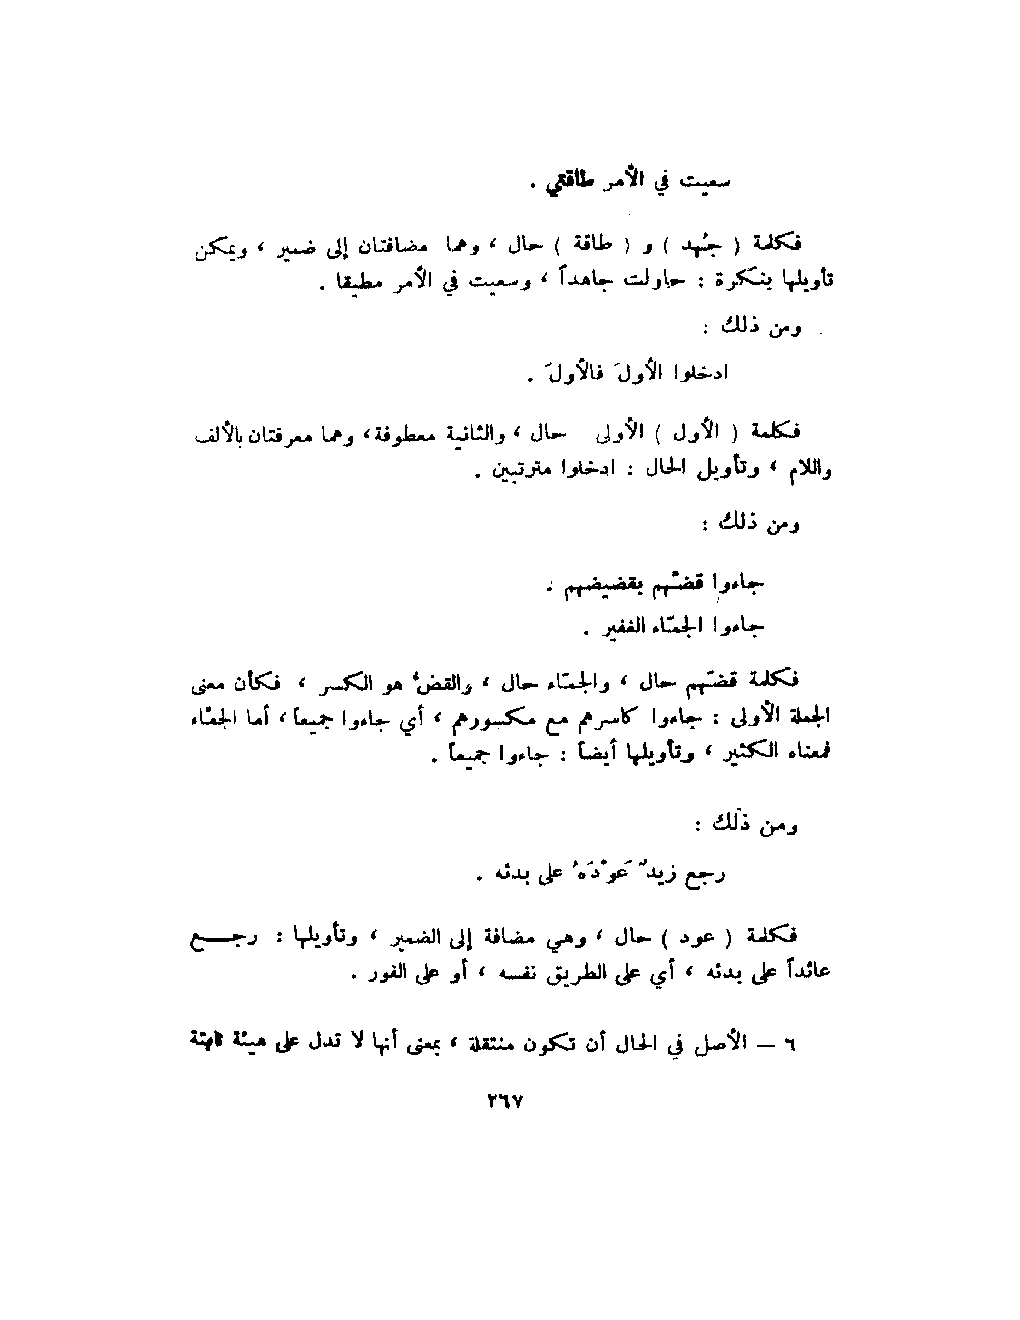 سعيت في الأمر طاقتي .
فكلمة ( جُهد ) و ( طاقة ) حال ، وهما مضافتان إلى ضمير ، ويمكن
تأويلها بنكرة : حاولت جاهداً ، وسعيت في الأمر مطيقا .
ومن ذلك :
ادخلوا الأولَ فالأولَ .
فكلمة ( الأول ) الأولى حال ، والثانية معطوفة، وهما معرفتان بالألف
واللام ، وتأويل الحال : ادخلوا مترتبين .
ومن ذلك :
جاءوا قضَّهم بقضيضهم .
جاءوا الجمّاء الغفير .
فكلمة قضّهم حال ، والجمّاء حال ، والقضُّ هو الكسر ، فكأن معنى
الجملة الأولى : جاءوا كاسرهم مع مكسورهم ، أي جاءوا جميعاً ، أما الجمّاء
فمعناه الكثير ، وتأويلها أيضاً : جاءوا جميعاً .
ومن ذلك :
رجع زيدٌ عَوْدَهُ على بدئه .
فكلمة ( عود ) حال ، وهي مضافة إلى الضمير ، وتأويلها : رجـــع
عائداً على بدئه ، أي على الطريق نفسه ، أو على الفور .
٦ – الأصل في الحال أن تكون منتقلة ، بمعنى أنها لا تدل على هيئة ثابتة
٢٦٧